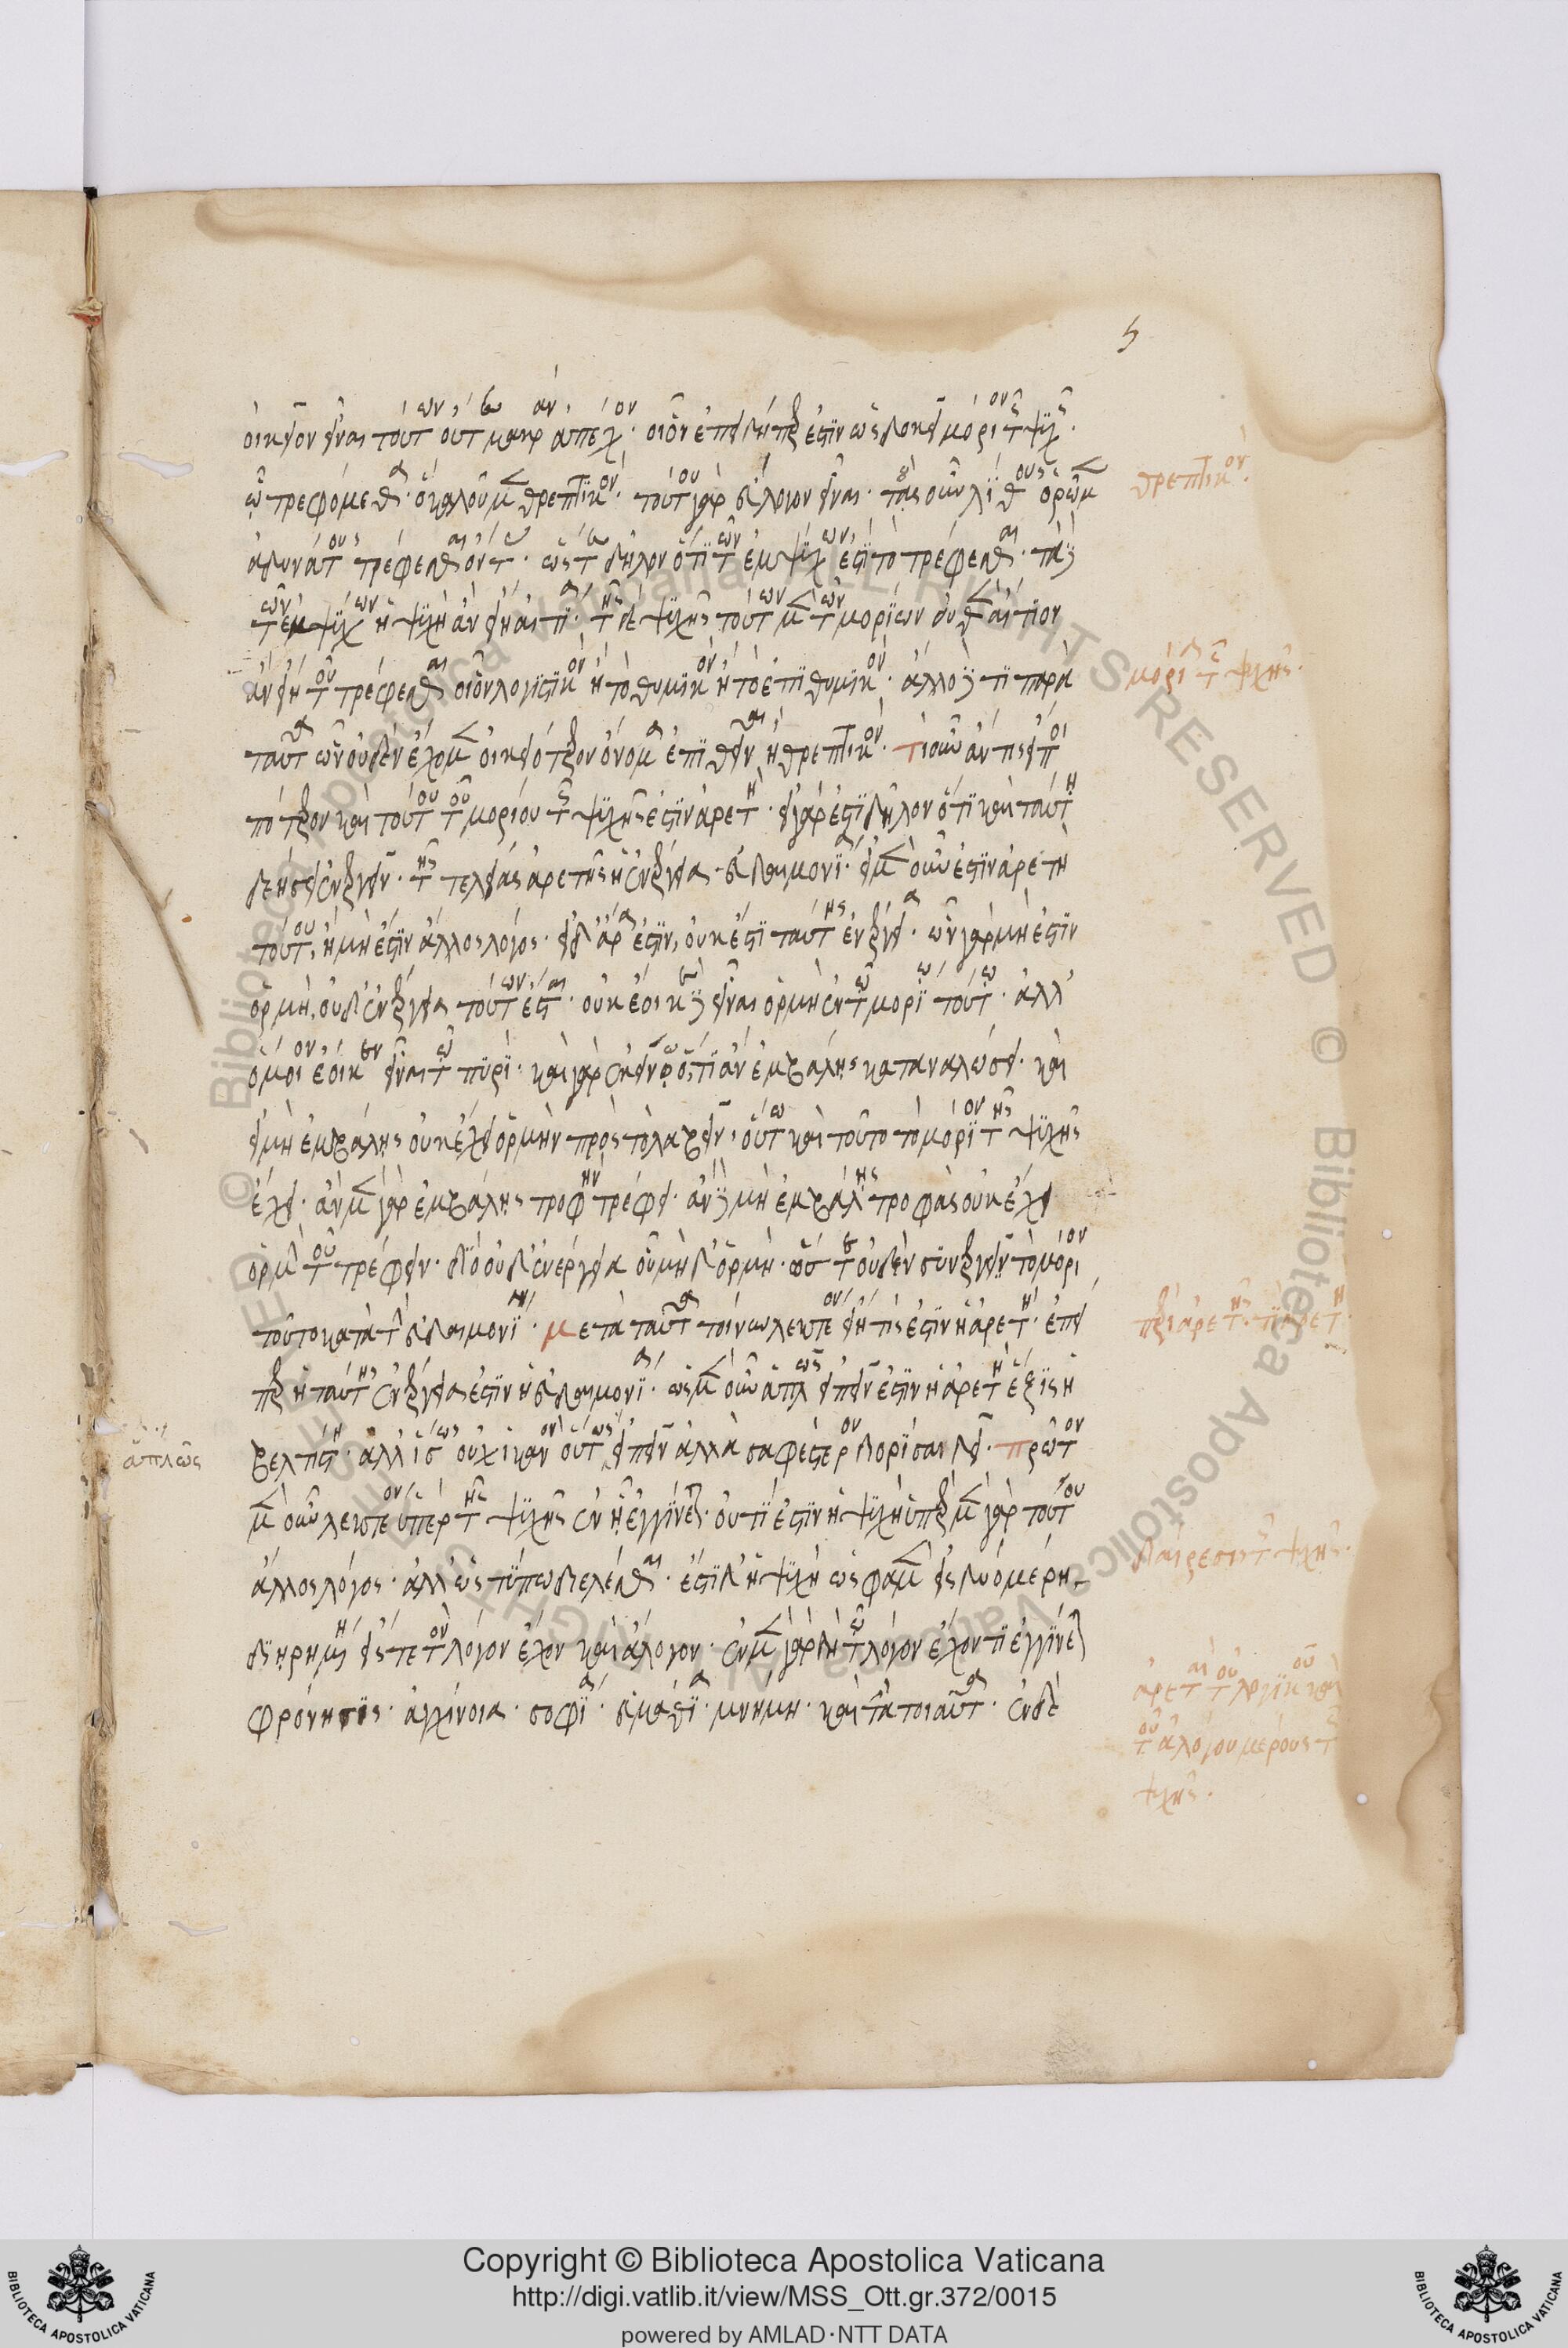 οἰκεῖον εἶναι τούτων οὔτε μακρὰν ἀπέχον· οἷον ἐπειδήπερ ἐστὶν ὡς δοκεῖ μόριον τῆς ψυχῆς·
ᾧ τρεφόμεθα· ὃ καλοῦμεν θρεπτικόν· τοῦτο γὰρ εὔλογον εἶναι· τοὺς οὖν λίθους ὁρῶμεν
ἀδυνάτους τρέφεσθαι ὄντας· ὥστε δῆλον ὅτι τῶν ἐμψύχων ἐστὶ τὸ τρέφεσθαι· τῶν δὲ
τῶν ἐμψύχων ἡ ψυχὴ ἂν εἴη αἰτία· τῆς δὲ ψυχῆς τούτων μὲν τῶν μορίων οὐθὲν αἴτιον
ἂν εἴη τοῦ τρέφεσθαι οἷον λογιστικὸν ἢ τὸ θυμικὸν ἢ τὸ ἐπιθυμικόν· ἄλλο δέ τι παρὰ
ταῦτα ᾧ οὐδὲν ἔχομεν οἰκειότερον ὄνομα ἐπιθεῖναι ἢ θρεπτικόν· τί οὖν ἄν τις εἴποι
πότερον καὶ τούτου τοῦ μορίου τῆς ψυχῆς ἐστὶν ἀρετή· εἰ γάρ ἐστι δῆλον ὅτι καὶ ταύτῃ
δεήσει ἐνεργεῖν· τῆς τελείας ἀρετῆς ἡ ἐνέργεια εὐδαιμονία· εἰ μὲν οὖν ἐστὶν ἀρετὴ
τούτου, ἢ μή ἐστιν ἄλλος λόγος· εἰ δ' ἄρα ἐστὶν, οὐκ ἔστι ταύτης ἐνέργεια· ὧν γὰρ μή ἐστιν
ὁρμή, οὐδ' ἐνέργεια τούτων ἔσται· οὐκ ἔοικε δὲ εἶναι ὁρμὴ ἐν τῷ μορίῳ τούτῳ· ἀλλ'
ὅμοιον ἔοικεν εἶναι τῷ πυρί· καὶ γὰρ ἐκεῖνο ὅ,τι ἂν ἐμβάλῃς καταναλώσει· καὶ
εἰ μὴ ἐμβάλῃς οὐκ ἔχει ὁρμὴν πρὸς τὸ λαβεῖν, οὕτω καὶ τοῦτο τὸ μόριον τῆς ψυχῆς
ἔχει· ἂν μὲν γὰρ ἐμβάλῃς τροφὴν τρέφει· ἂν δὲ μὴ ἐμβάλῃς τροφὰς οὐκ ἔχει
ὁρμὴν τοῦ τρέφειν· διὸ οὐδ' ἐνέργεια οὗ μὴ δ' ὁρμή· ὥστε οὐδὲν συνεργεῖ τὸ μόριον
τοῦτο κατὰ τὴν εὐδαιμονίαν· μετὰ ταῦτα τοίνυν λεκτέον εἴη τίς ἐστιν ἡ ἀρετή· ἐπεί
περ ἡ ταύτης ἐνέργεια ἐστὶν ἡ εὐδαιμονία· ὡς μὲν οὖν ἁπλῶς εἰπεῖν ἐστὶν ἡ ἀρετὴ ἕξις ἡ
βελτίστη· ἀλλ' ἴσως οὐχ ἱκανὸν οὕτως εἰπεῖν ἀλλὰ σαφέστερον διορίσαι δεῖ· πρῶτον
μὲν οὖν λεκτέον ὑπὲρ τῆς ψυχῆς ἐν ᾗ ἐγγίνεται· οὐ τί ἐστιν ἡ ψυχὴ ὑπὲρ μὲν γὰρ τούτου
ἄλλος λόγος· ἀλλ' ὡς τύπῳ διελέσθαι· ἔστι δ' ἡ ψυχὴ ὥς φαμεν εἰς δύο μέρη
διῃρημένη εἴς τε τὸ λόγον ἔχον καὶ ἄλογον· ἐν μὲν γὰρ δὴ τῷ λόγον ἔχοντι ἐγγίνεται
φρόνησις· ἀγχίνοια· σοφία· εὐμάθεια· μνήμη· καὶ τὰ τοιαῦτα· ἐν δὲ
θρεπτικόν·
μόρια τῆς ψυχῆς·
περὶ ἀρετῆς· τί ἀρετή·
ἁπλῶς
διαίρεσις τῆς ψυχῆς·
ἀρεταὶ τοῦ λογικοῦ καὶ
τοῦ ἀλόγου μέρους τῆς
ψυχῆς·
Copyright © Biblioteca Apostolica Vaticana
http://digi.vatlib.it/view/MSS_Ott.gr.372/0015
powered by AMLAD·NTT DATA
BIBLIOTECA APOSTOLICA VATICANA
BIBLIOTECA APOSTOLICA VATICANA